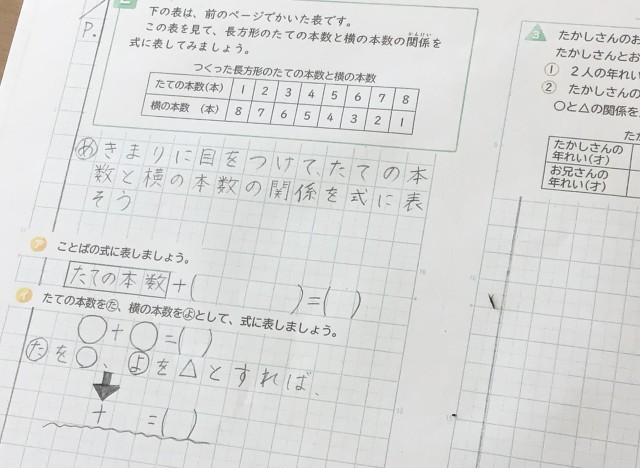 P.
2
下の表は、前のページでかいた表です。
この表を見て、長方形のたての本数と横の本数の関係を
かんけい
式に表してみましょう。
つくった長方形のたての本数と横の本数
たての本数(本) 1 2 3 4 5 6 7 8
横の本数 (本) 8 7 6 5 4 3 2 1
め きまりに目をつけて、たての本
数と横の本数の関係を式に表
そう
ア ことばの式に表しましょう。
たての本数+( )=( )
イ たての本数をた、横の本数をよとして、式に表しましょう。
○+○=( )
たを○、よを△とすれば、
+ =( )
3 たかしさんのお
たかしさんとお
① 2人の年れい
② たかしさんの
○と△の関係を
たかしさんの
年れい(才)
お兄さんの
年れい(才)